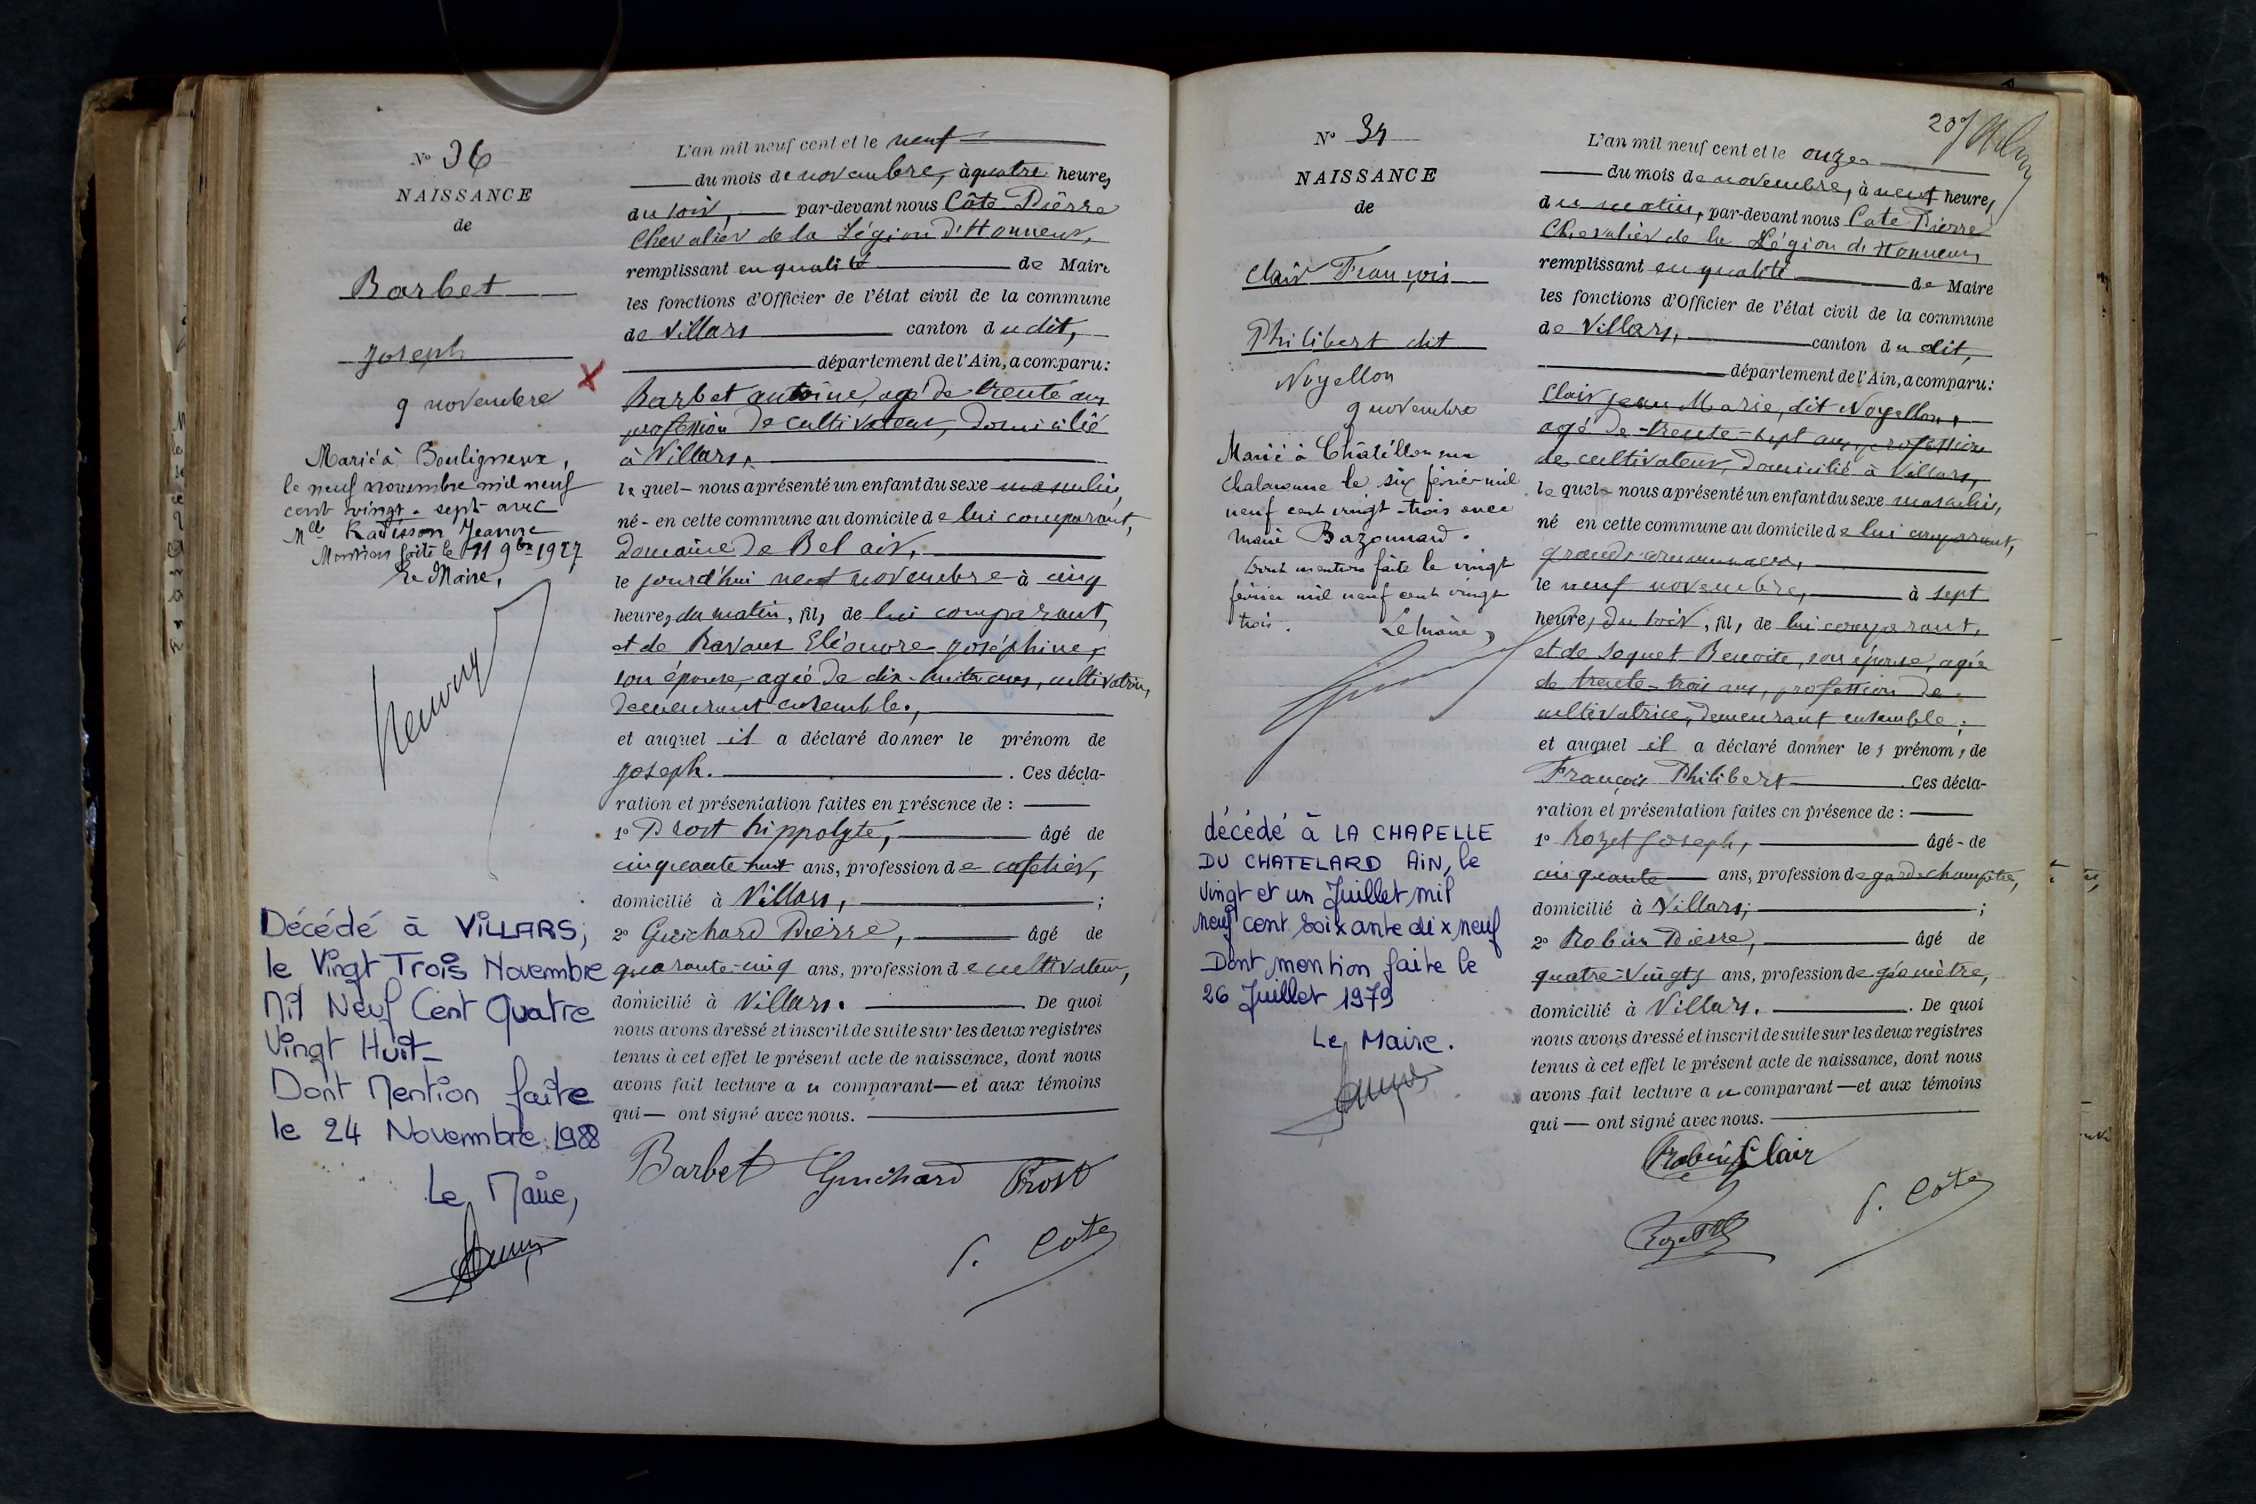 N° 36
NAISSANCE
de
Barbet
Joseph
9 novembre
Marié à Bouligneux,
le neuf novembre mil neuf
cent vingt-sept avec
Mlle Radisson Jeanne
Mention faite le 11 9bre 1927
Le Maire,
Décédé à VILLARS,
le Vingt Trois Novembre
Mil Neuf Cent Quatre
Vingt Huit_
Dont Mention faite
le 24 Novembre 1988
Le Maire,
L'an mil neuf cent et le neuf
du mois de novembre, à quatre heures
du soir, par-devant nous Côte Pierre
Chevalier de la Légion d'Honneur,
remplissant en qualité de Maire
les fonctions d'Officier de l'état civil de la commune
de Villars canton dudit,
département de l'Ain, a comparu:
Barbet antoine, agé de trente ans
profession de cultivateur, domicilié
à Villars,
lequel nous a présenté un enfant du sexe masculin,
né en cette commune au domicile de lui comparant,
domaine de Bel air,
le jourd'hui neuf novembre à cinq
heures du matin, fils de lui comparant,
et de Ravaux Eléonore Joséphine,
son épouse, agée de dix-huit ans, cultivatrice,
demeurant ensemble,
et auquel il a déclaré donner le prénom de
Joseph. . Ces décla-
ration et présentation faites en présence de :
1° Prost hippolyte, âgé de
cinquante-huit ans, profession de cafetier,
domicilié à Villars, ;
2° Guichard Pierre, âgé de
quarante-cinq ans, profession de cultivateur,
domicilié à Villars. De quoi
nous avons dressé et inscrit de suite sur les deux registres
tenus à cet effet le présent acte de naissance, dont nous
avons fait lecture au comparant et aux témoins
qui ont signé avec nous.
Barbet Guichard Prost
P. Cote
207
N° 37
NAISSANCE
de
Clair François
Philibert dit
Noyellon
9 novembre
Marié à Châtillon sur
Chalaronne le six février mil
neuf cent vingt-trois avec
Marie Bazonnard.
Dont mention faite le vingt
février mil neuf cent vingt
trois. Le Maire,
décédé à LA CHAPELLE
DU CHATELARD AIN, le
vingt et un Juillet mil
neuf cent soixante dix neuf
Dont mention faite le
26 Juillet 1979
Le Maire.
L'an mil neuf cent et le onze
du mois de novembre, à neuf heures
du matin, par-devant nous Cote Pierre
Chevalier de la Légion d'Honneur,
remplissant en qualité de Maire
les fonctions d'Officier de l'état civil de la commune
de Villars, canton dudit,
département de l'Ain, a comparu:
Clair Jean Marie, dit Noyellon,
agé de trente-sept ans, profession
de cultivateur, domicilié à Villars,
lequel nous a présenté un enfant du sexe masculin,
né en cette commune au domicile de lui comparant,
grands
le neuf novembre, à sept
heures du soir, fils de lui comparant,
et de Soquet Benoite, son épouse, agée
de trente-trois ans, profession de
cultivatrice, demeurant ensemble;
et auquel il a déclaré donner les prénoms de
François Philibert . Ces décla-
ration et présentation faites en présence de :
1° Rozet Joseph, âgé de
cinquante ans, profession de garde champêtre,
domicilié à Villars; ;
2° Robin Pierre, âgé de
quatre-vingts ans, profession de géomètre,
domicilié à Villars. . De quoi
nous avons dressé et inscrit de suite sur les deux registres
tenus à cet effet le présent acte de naissance, dont nous
avons fait lecture au comparant et aux témoins
qui ont signé avec nous.
Robin Clair
P. Cote
Rozet